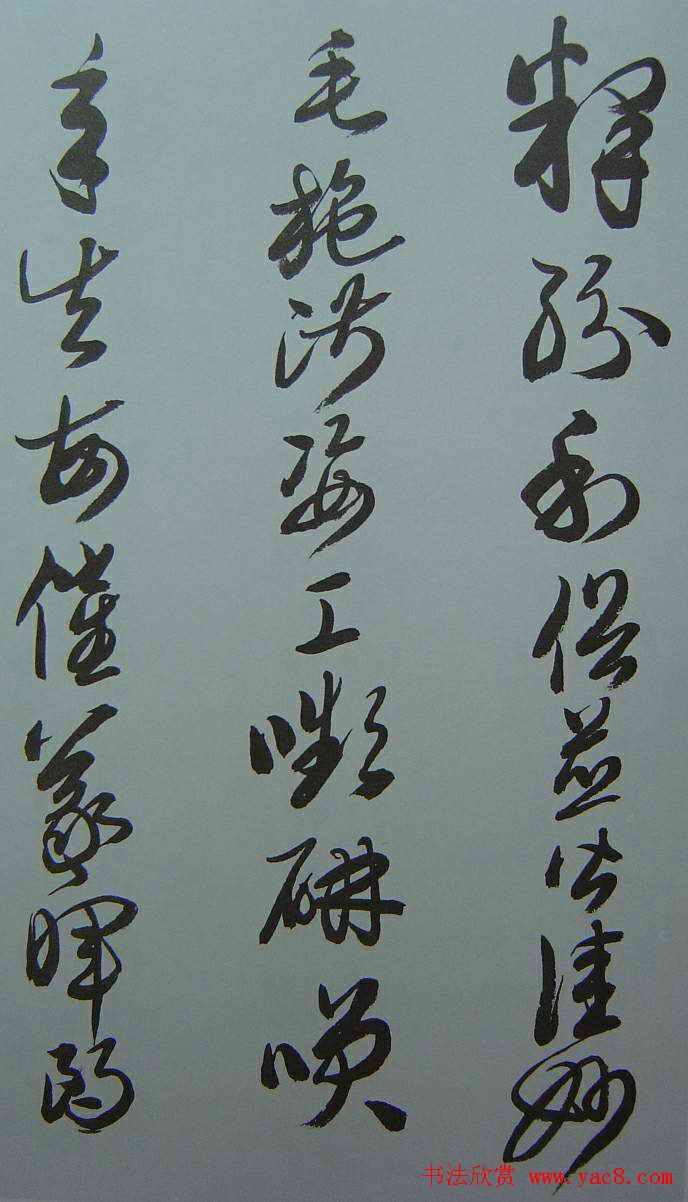 釋紛利俗並皆佳妙
毛施淑姿工嚬研笑
年矢每催羲暉朗
书法欣赏 www.yac8.com